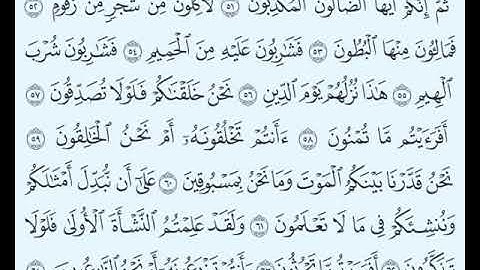 ثُمَّ إِنَّكُمْ أَيُّهَا الضَّالُّونَ الْمُكَذِّبُونَ ٥١ لَآكِلُونَ مِن شَجَرٍ مِّن زَقُّومٍ ٥٢
فَمَالِئُونَ مِنْهَا الْبُطُونَ ٥٣ فَشَارِبُونَ عَلَيْهِ مِنَ الْحَمِيمِ ٥٤ فَشَارِبُونَ شُرْبَ
الْهِيمِ ٥٥ هَٰذَا نُزُلُهُمْ يَوْمَ الدِّينِ ٥٦ نَحْنُ خَلَقْنَاكُمْ فَلَوْلَا تُصَدِّقُونَ ٥٧
أَفَرَءَيْتُم مَّا تُمْنُونَ ٥٨ ءَأَنتُمْ تَخْلُقُونَهُ أَمْ نَحْنُ الْخَالِقُونَ ٥٩
نَحْنُ قَدَّرْنَا بَيْنَكُمُ الْمَوْتَ وَمَا نَحْنُ بِمَسْبُوقِينَ ٦٠ عَلَىٰ أَن نُّبَدِّلَ أَمْثَالَكُمْ
وَنُنشِئَكُمْ فِي مَا لَا تَعْلَمُونَ ٦١ وَلَقَدْ عَلِمْتُمُ النَّشْأَةَ الْأُولَىٰ فَلَوْلَا
تَذَكَّرُونَ ٦٢ أَفَرَءَيْتُم مَّا تَحْرُثُونَ ٦٣ ءَأَنتُمْ تَزْرَعُونَهُ أَمْ نَحْنُ الزَّارِعُونَ